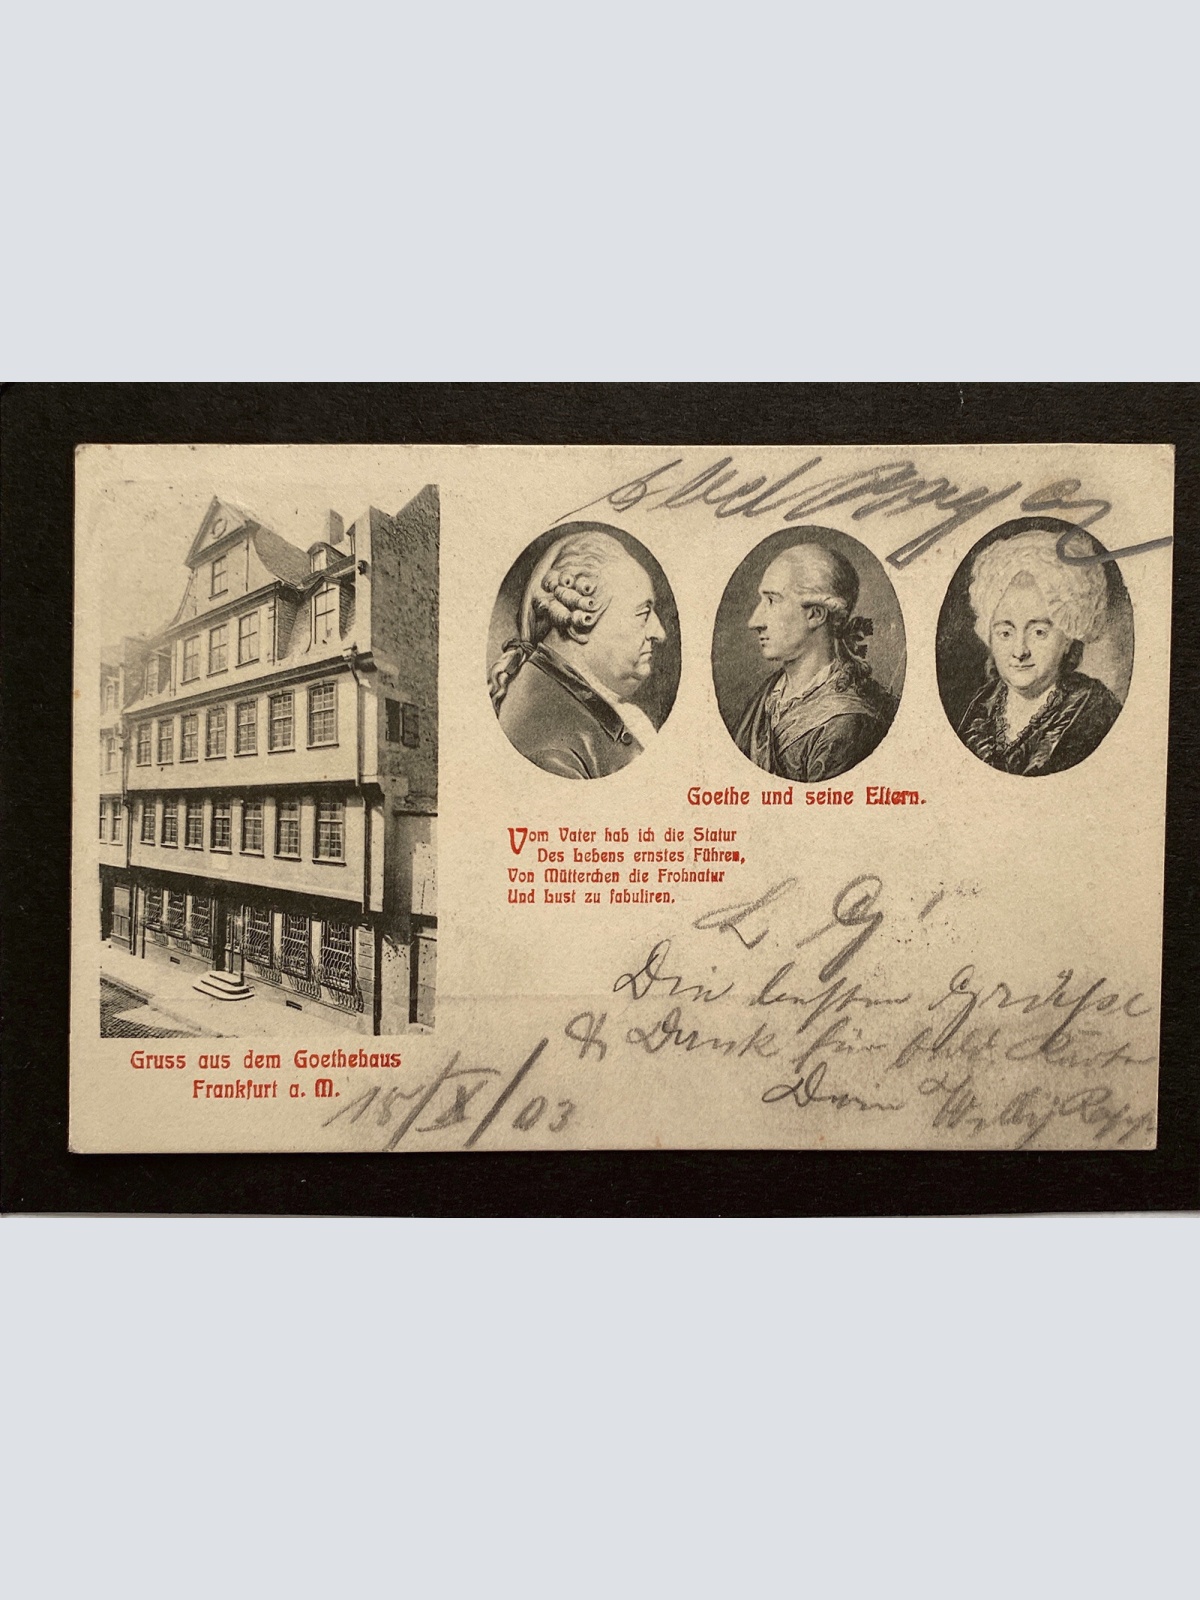 Goethe und seine Eltern.
Vom Vater hab ich die Statur
Des Lebens ernstes Führen,
Von Mütterchen die Frohnatur
Und Lust zu fabuliren.
L. G.
Grüße
& Dank für
Dein Willy
Gruss aus dem Goethehaus
Frankfurt a. M.
18/X/03